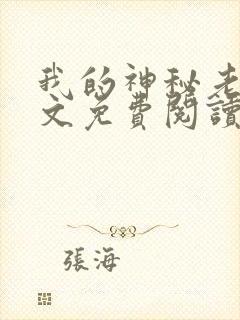 我的神秘老
文免費閱讀
張海